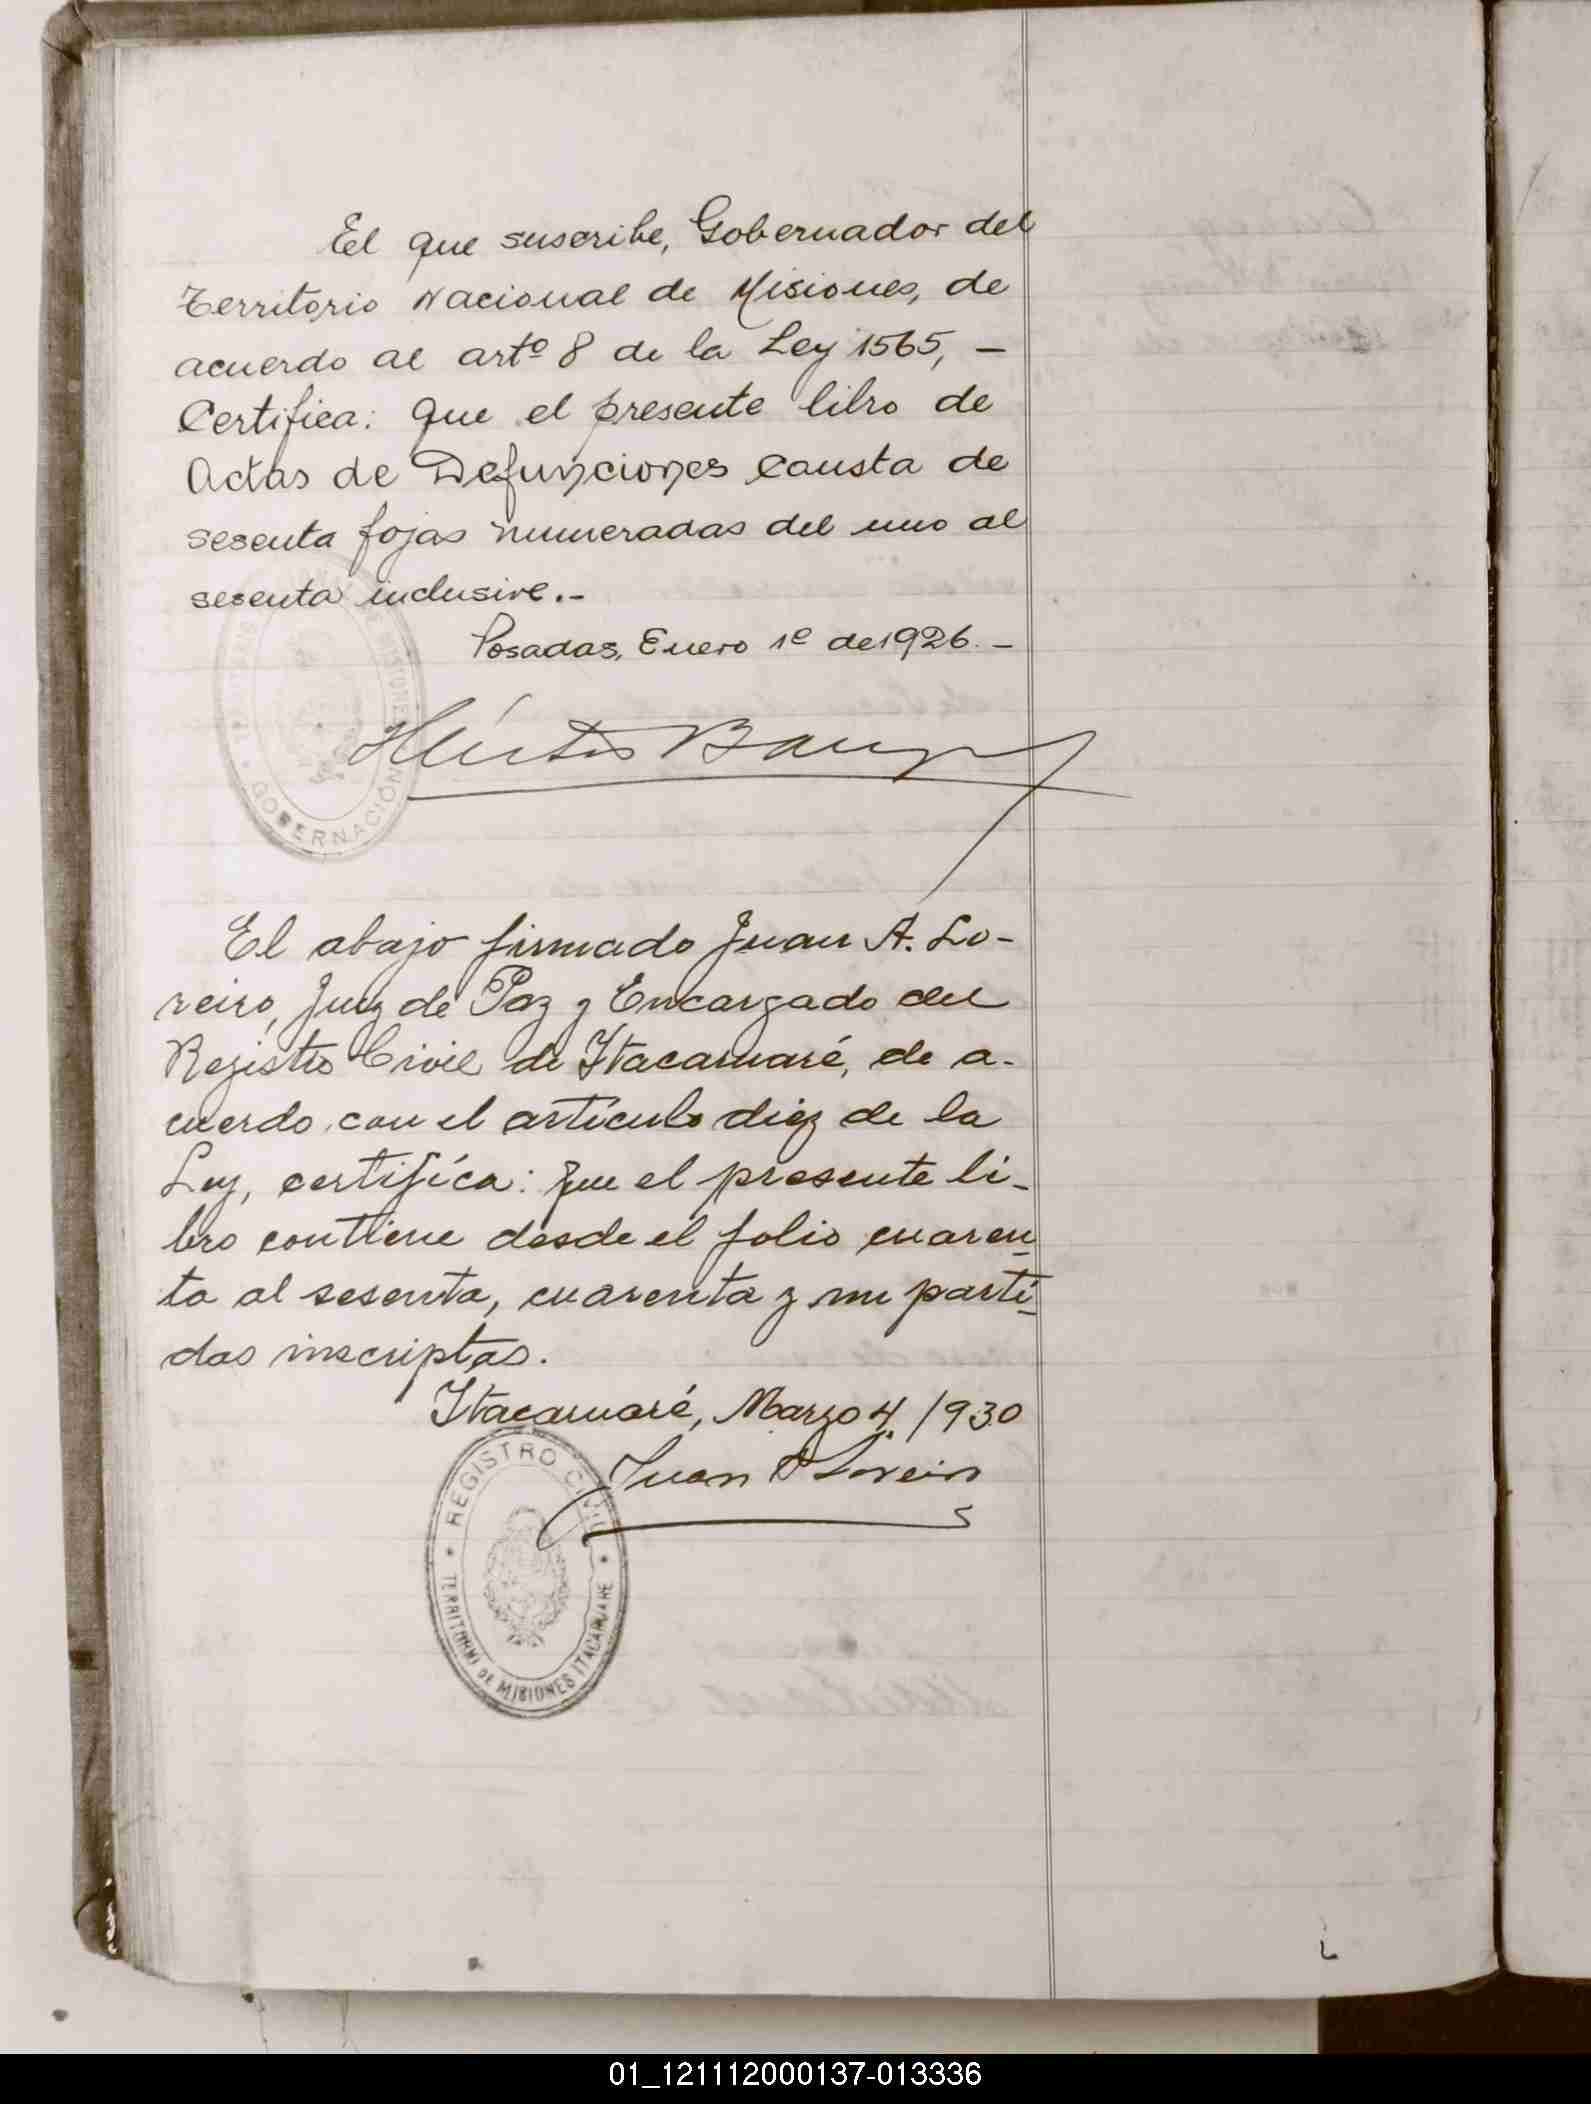 El que suscribe, Gobernador del
Territorio Nacional de Misiones, de
acuerdo al artº 8 de la Ley 1565, —
Certifica: que el presente libro de
Actas de Defunciones consta de
sesenta fojas numeradas del uno al
sesenta inclusive.-
Posadas, Enero 1º de 1926. —
GOBERNACIÓN DE MISIONES
El abajo firmado Juan A. Lo-
reiro, Juez de Paz y Encargado del
Registro Civil de Itacaruaré, de a-
cuerdo con el artículo diez de la
Ley, certifíca: que el presente li-
bro contiene desde el folio cuaren-
ta al sesenta, cuarenta y un parti-
das inscriptas.
Itacaruaré, Marzo 4 /930
Juan A Loreiro
REGISTRO CIVIL
TERRITORIO DE MISIONES ITACARUARE
01_121112000137-013336